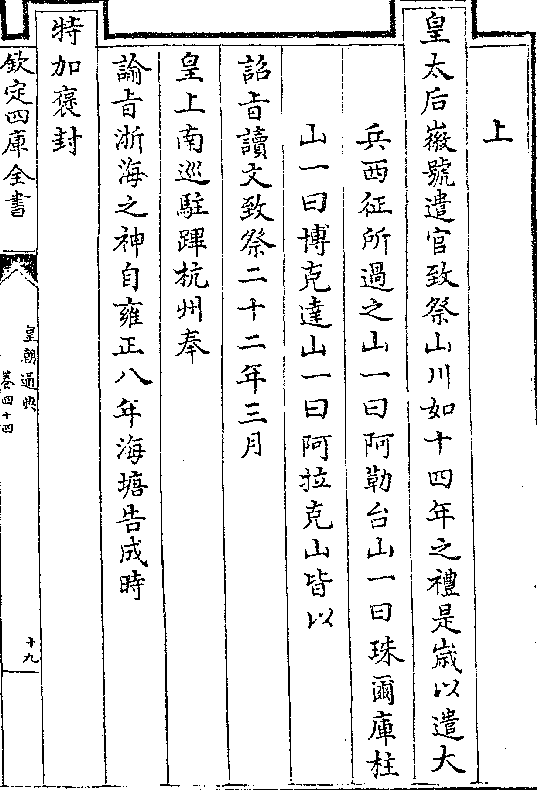 上
皇太后徽號遣官致祭山川如十四年之禮是歲以遣大
兵西征所過之山一曰阿勒台山一曰珠爾庫柱
山一曰博克達山一曰阿拉克山皆以
詔旨讀文致祭二十二年三月
皇上南巡駐蹕杭州奉
諭旨浙海之神自雍正八年海塘告成時
特加褒封
欽定四庫全書
皇朝通典
卷四十四
十九